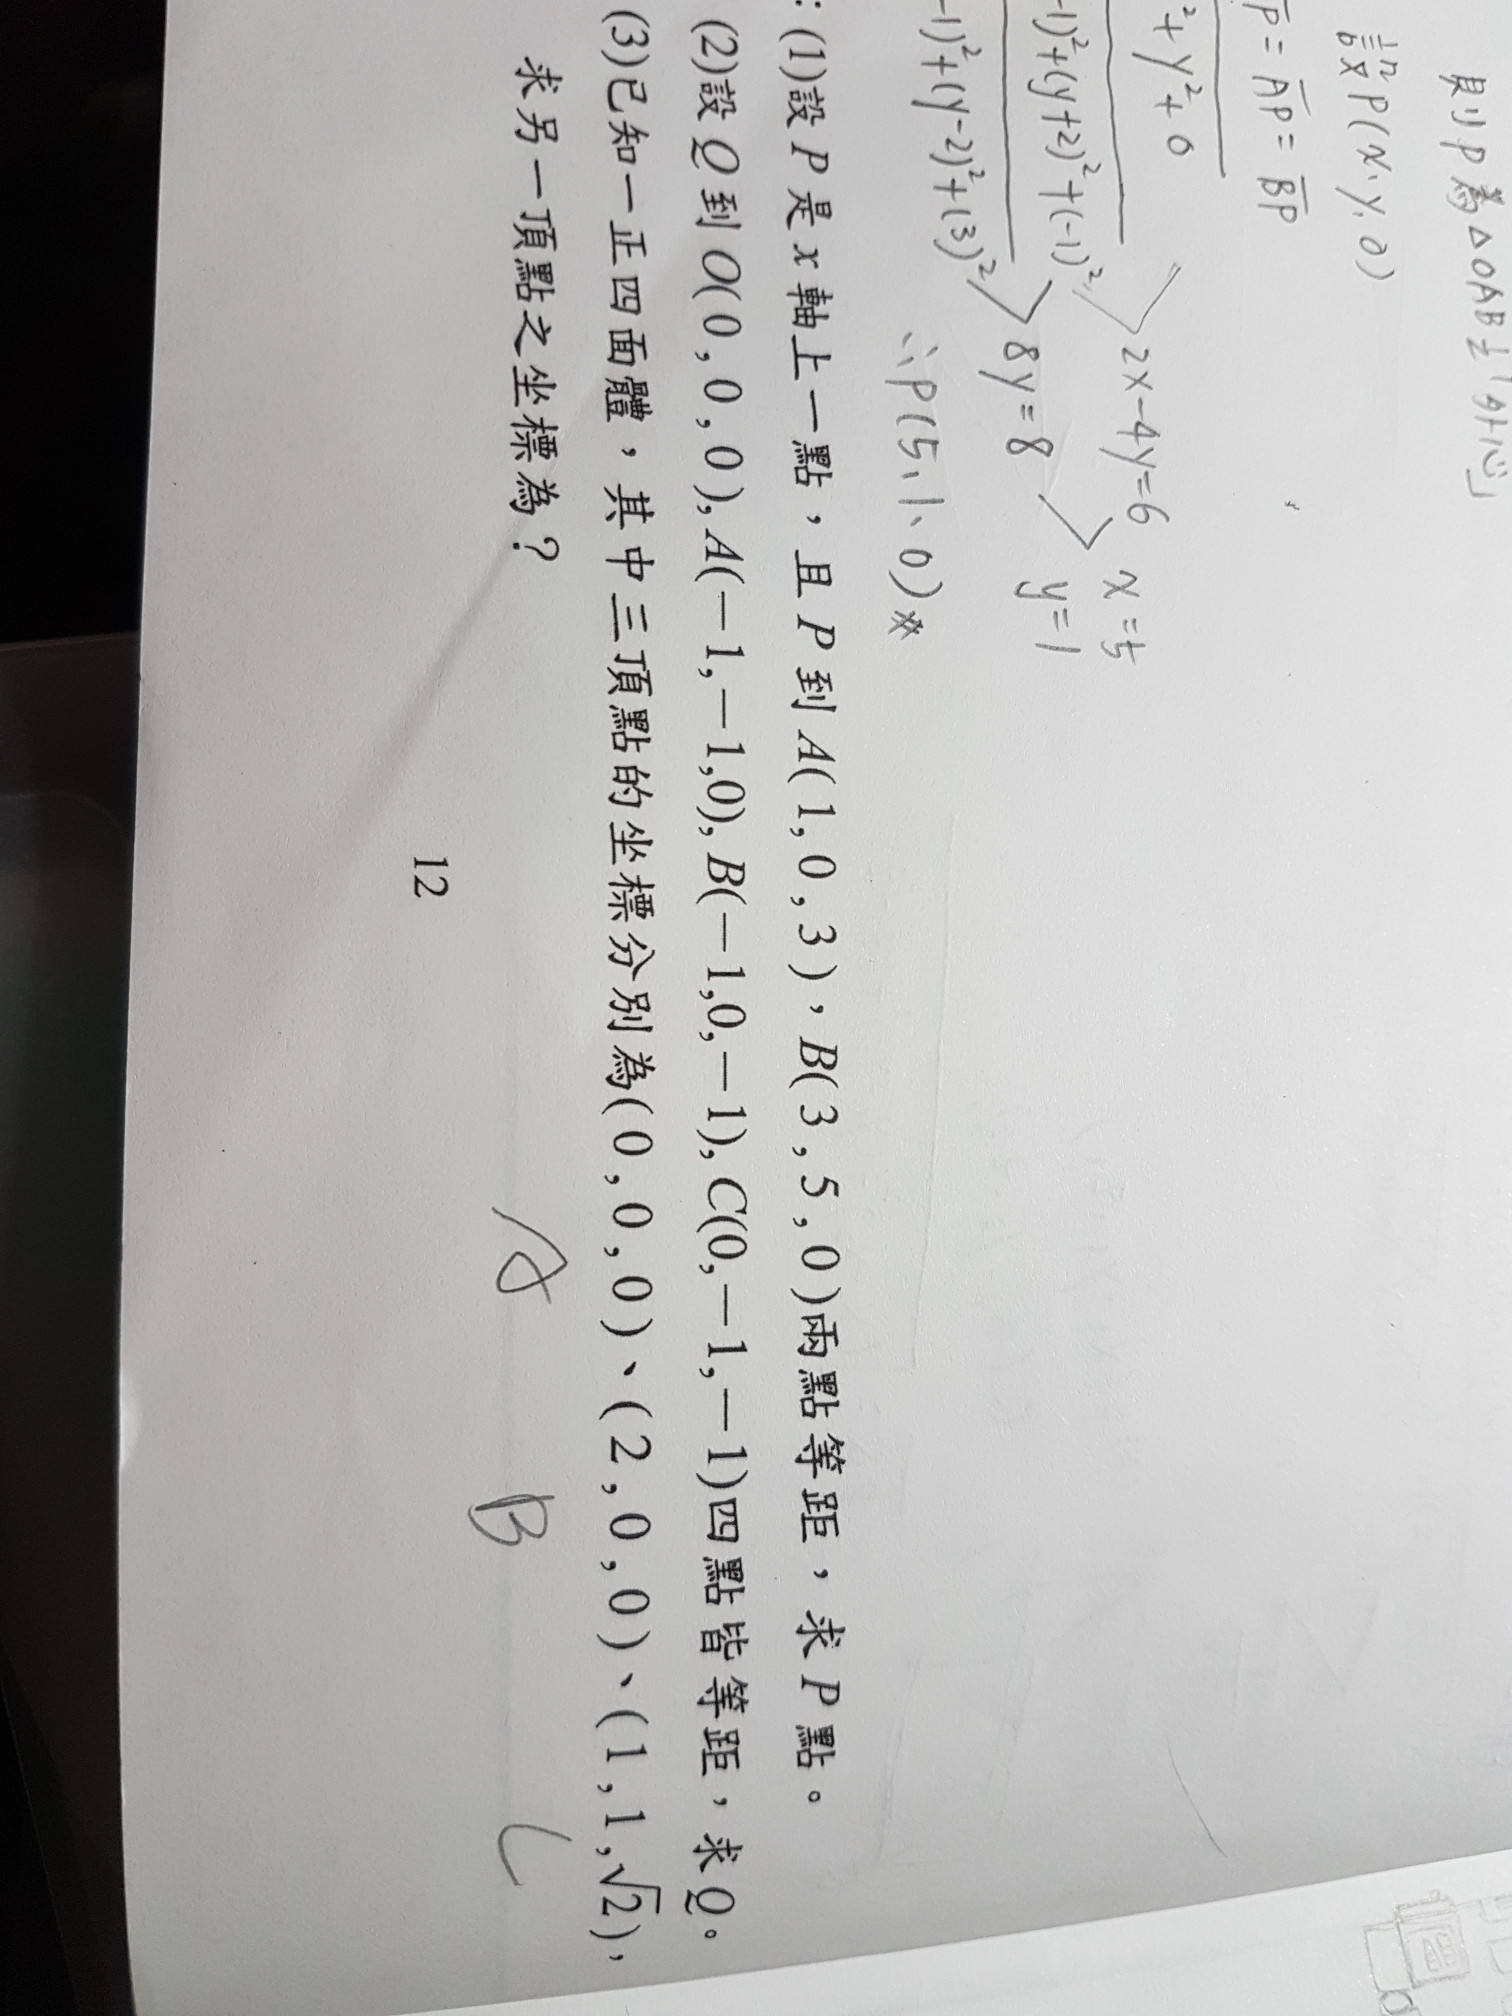 則P為△OAB之「外心」
設P(x、y、0)
P̅ = A̅P̅ = B̅P̅
²+y²+0
-1)²+(y+2)²+(-1)² 2x-4y=6 x=5
-1)²+(y-2)²+(3)² 8y=8 y=1
∴P(5、1、0)※
:(1)設 P 是 x 軸上一點,且 P 到 A(1,0,3),B(3,5,0)兩點等距,求 P 點。
(2)設 Q 到 O(0,0,0),A(−1,−1,0),B(−1,0,−1),C(0,−1,−1)四點皆等距,求 Q。
(3)已知一正四面體,其中三頂點的坐標分別為(0,0,0)、(2,0,0)、(1,1,√2),
求另一頂點之坐標為?
A B C
12